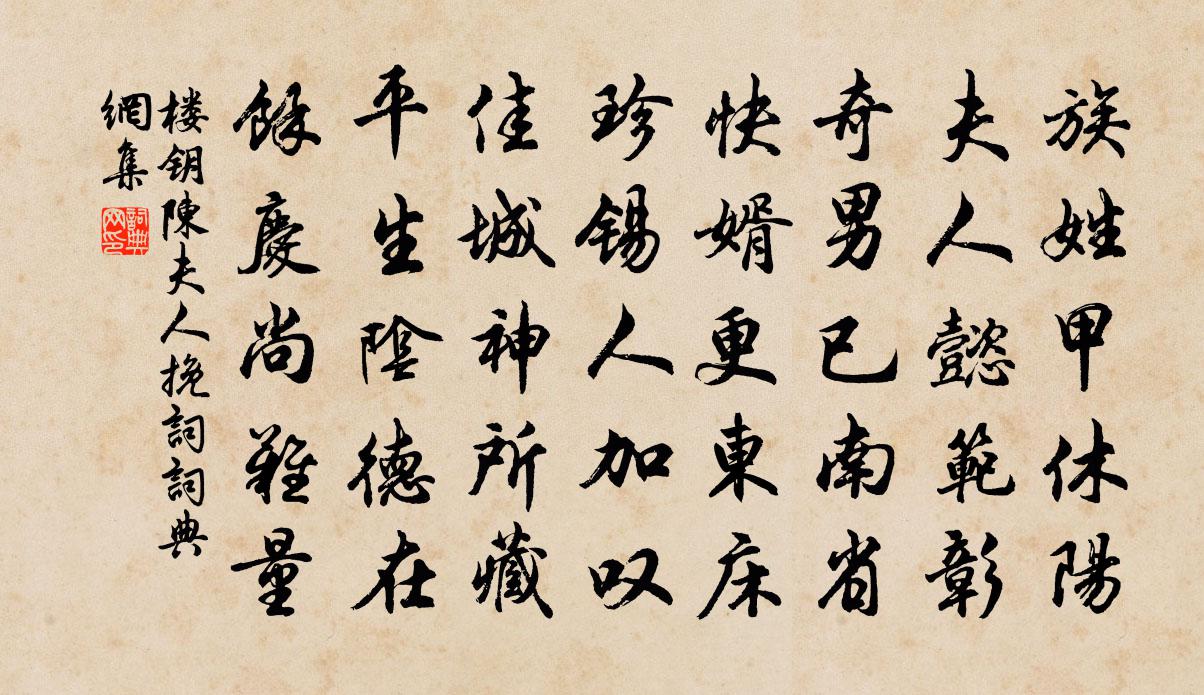 族姓甲休陽
夫人懿範彰
奇男已南省
快婿更東床
珍錫人加叹
佳城神所藏
平生陰德在
餘慶尚難量
楼钥陳夫人挽詞詞典
網集
詞典
网印